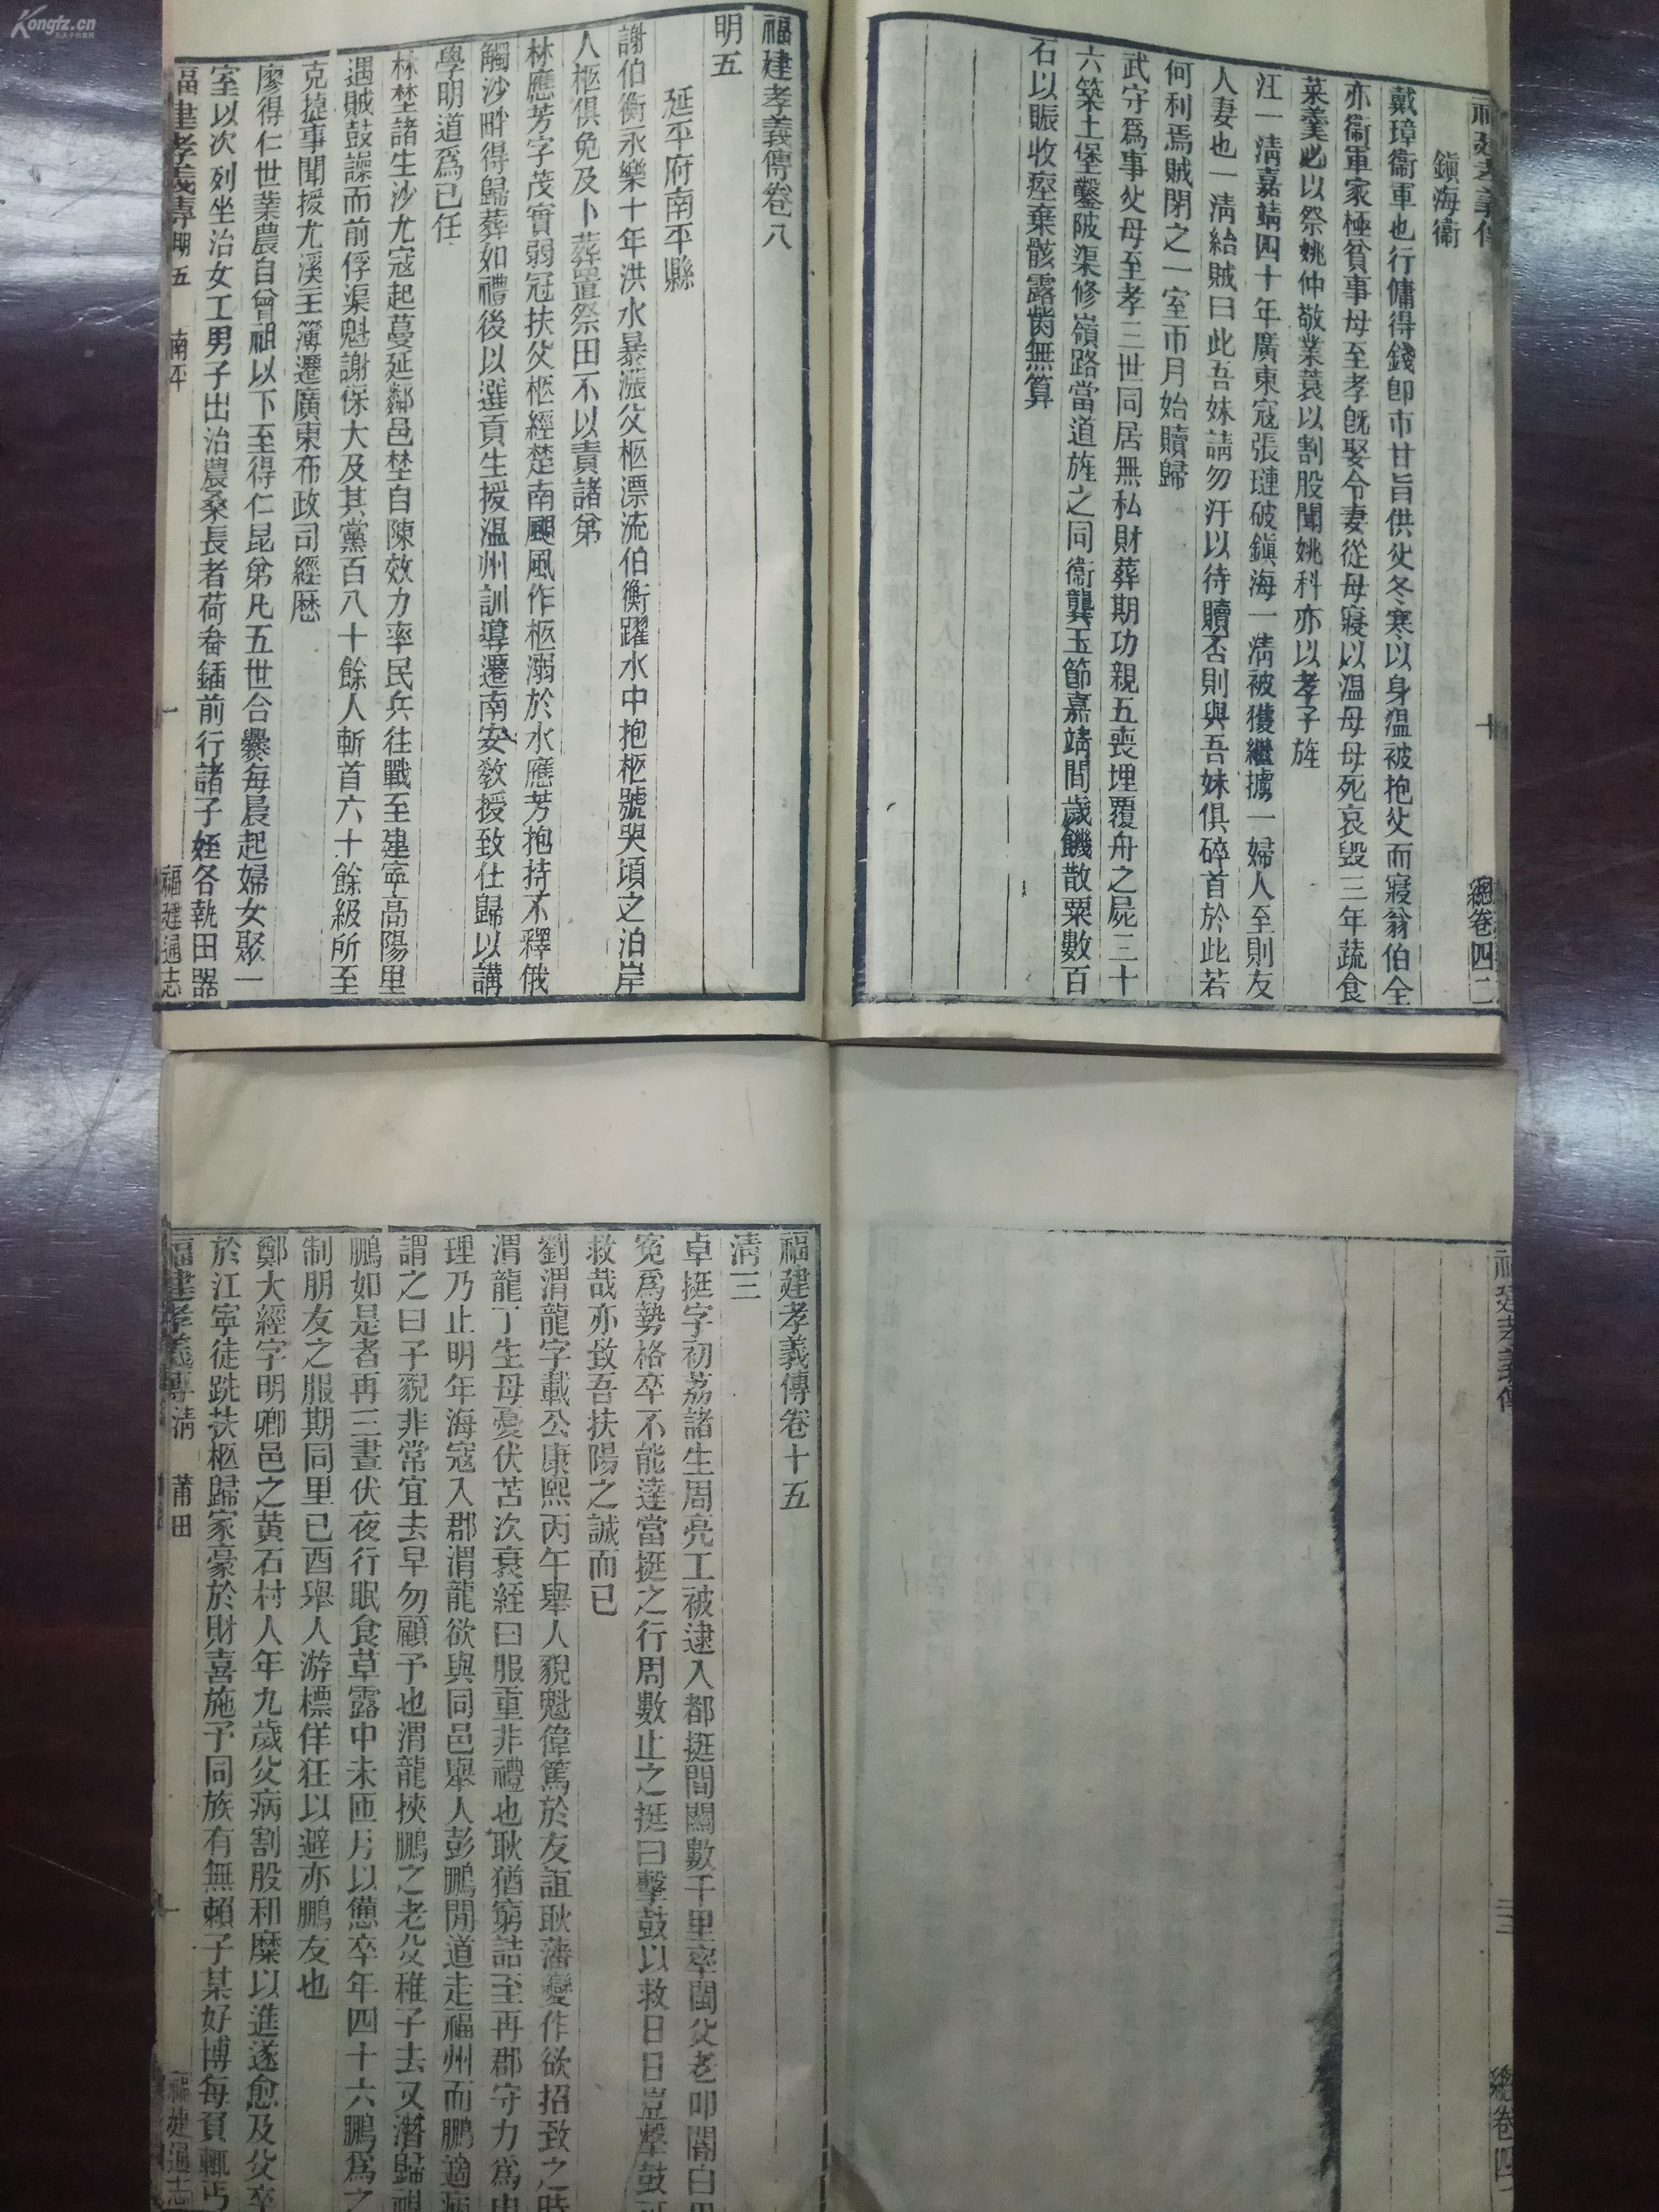 Kongfz.cn
鎮海衞
戴璋衞軍也行傭得錢卽市甘旨供父冬寒以身温被抱父而寢翁伯全
亦衞軍家極貧事母至孝旣娶令妻從母寢以温母母死哀毀三年蔬食
菜羹必以祭姚仲敬業蓑以割股聞姚科亦以孝子旌
汪一淸嘉靖四十年廣東寇張璉破鎮海一淸被獲繼擄一婦人至則友
人妻也一淸紿賊曰此吾妹請勿汙以待贖否則與吾妹俱碎首於此若
何利焉賊閉之一室帀月始贖歸
武守爲事父母至孝三世同居無私財葬期功親五喪埋覆舟之屍三十
六築土堡鑿陂渠修嶺路當道旌之同衞龔玉節嘉靖間歲饑散粟數百
石以賑收瘞棄骸露胔無算
福建孝義傳
十
總卷四二
福建孝義傳卷八
明五
延平府南平縣
謝伯衡永樂十年洪水暴漲父柩漂流伯衡躍水中抱柩號哭頃之泊岸
人柩俱免及卜葬置祭田不以責諸弟
林應芳字茂實弱冠扶父柩經楚南颶風作柩溺於水應芳抱持不釋俄
觸沙畔得歸葬如禮後以選貢生授温州訓導遷南安敎授致仕歸以講
學明道爲已任
林埜諸生沙尤寇起蔓延鄰邑埜自陳效力率民兵往戰至建寧高陽里
遇賊鼓譟而前俘渠魁謝保大及其黨百八十餘人斬首六十餘級所至
克捷事聞授尤溪主簿遷廣東布政司經歷
廖得仁世業農自曾祖以下至得仁昆弟凡五世合爨每晨起婦女聚一
室以次列坐治女工男子出治農桑長者荷畚鍤前行諸子姪各執田器
福建孝義傳 明五 南平 一 福建通志
福建孝義傳
總卷四
福建孝義傳卷十五
清三
卓挺字初荔諸生周亮工被逮入都挺間關數千里率閩父老叩閽白
冤爲勢格卒不能達當挺之行周數止之挺曰擊鼓以救日日豈擊鼓
救哉亦致吾扶陽之誠而已
劉渭龍字載公康熙丙午舉人貌魁偉篤於友誼耿藩變作欲招致之時
渭龍丁生母憂伏苫次衰絰曰服重非禮也耿猶窮詰至再郡守力爲申
理乃止明年海寇入郡渭龍欲與同邑舉人彭鵬閒道走福州而鵬適病
謂之曰子貌非常宜去早勿顧予也渭龍挾鵬之老父稚子去又潛歸視
鵬如是者再三晝伏夜行眠食草露中未匝月以憊卒年四十六鵬爲之
制朋友之服期同里已酉舉人游標佯狂以避亦鵬友也
鄭大經字明卿邑之黃石村人年九歲父病割股和糜以進遂愈及父卒
於江寧徒跣扶柩歸家豪於財喜施予同族有無賴子某好博每負輒丐
福建孝義傳 清 莆田 一 福建通志